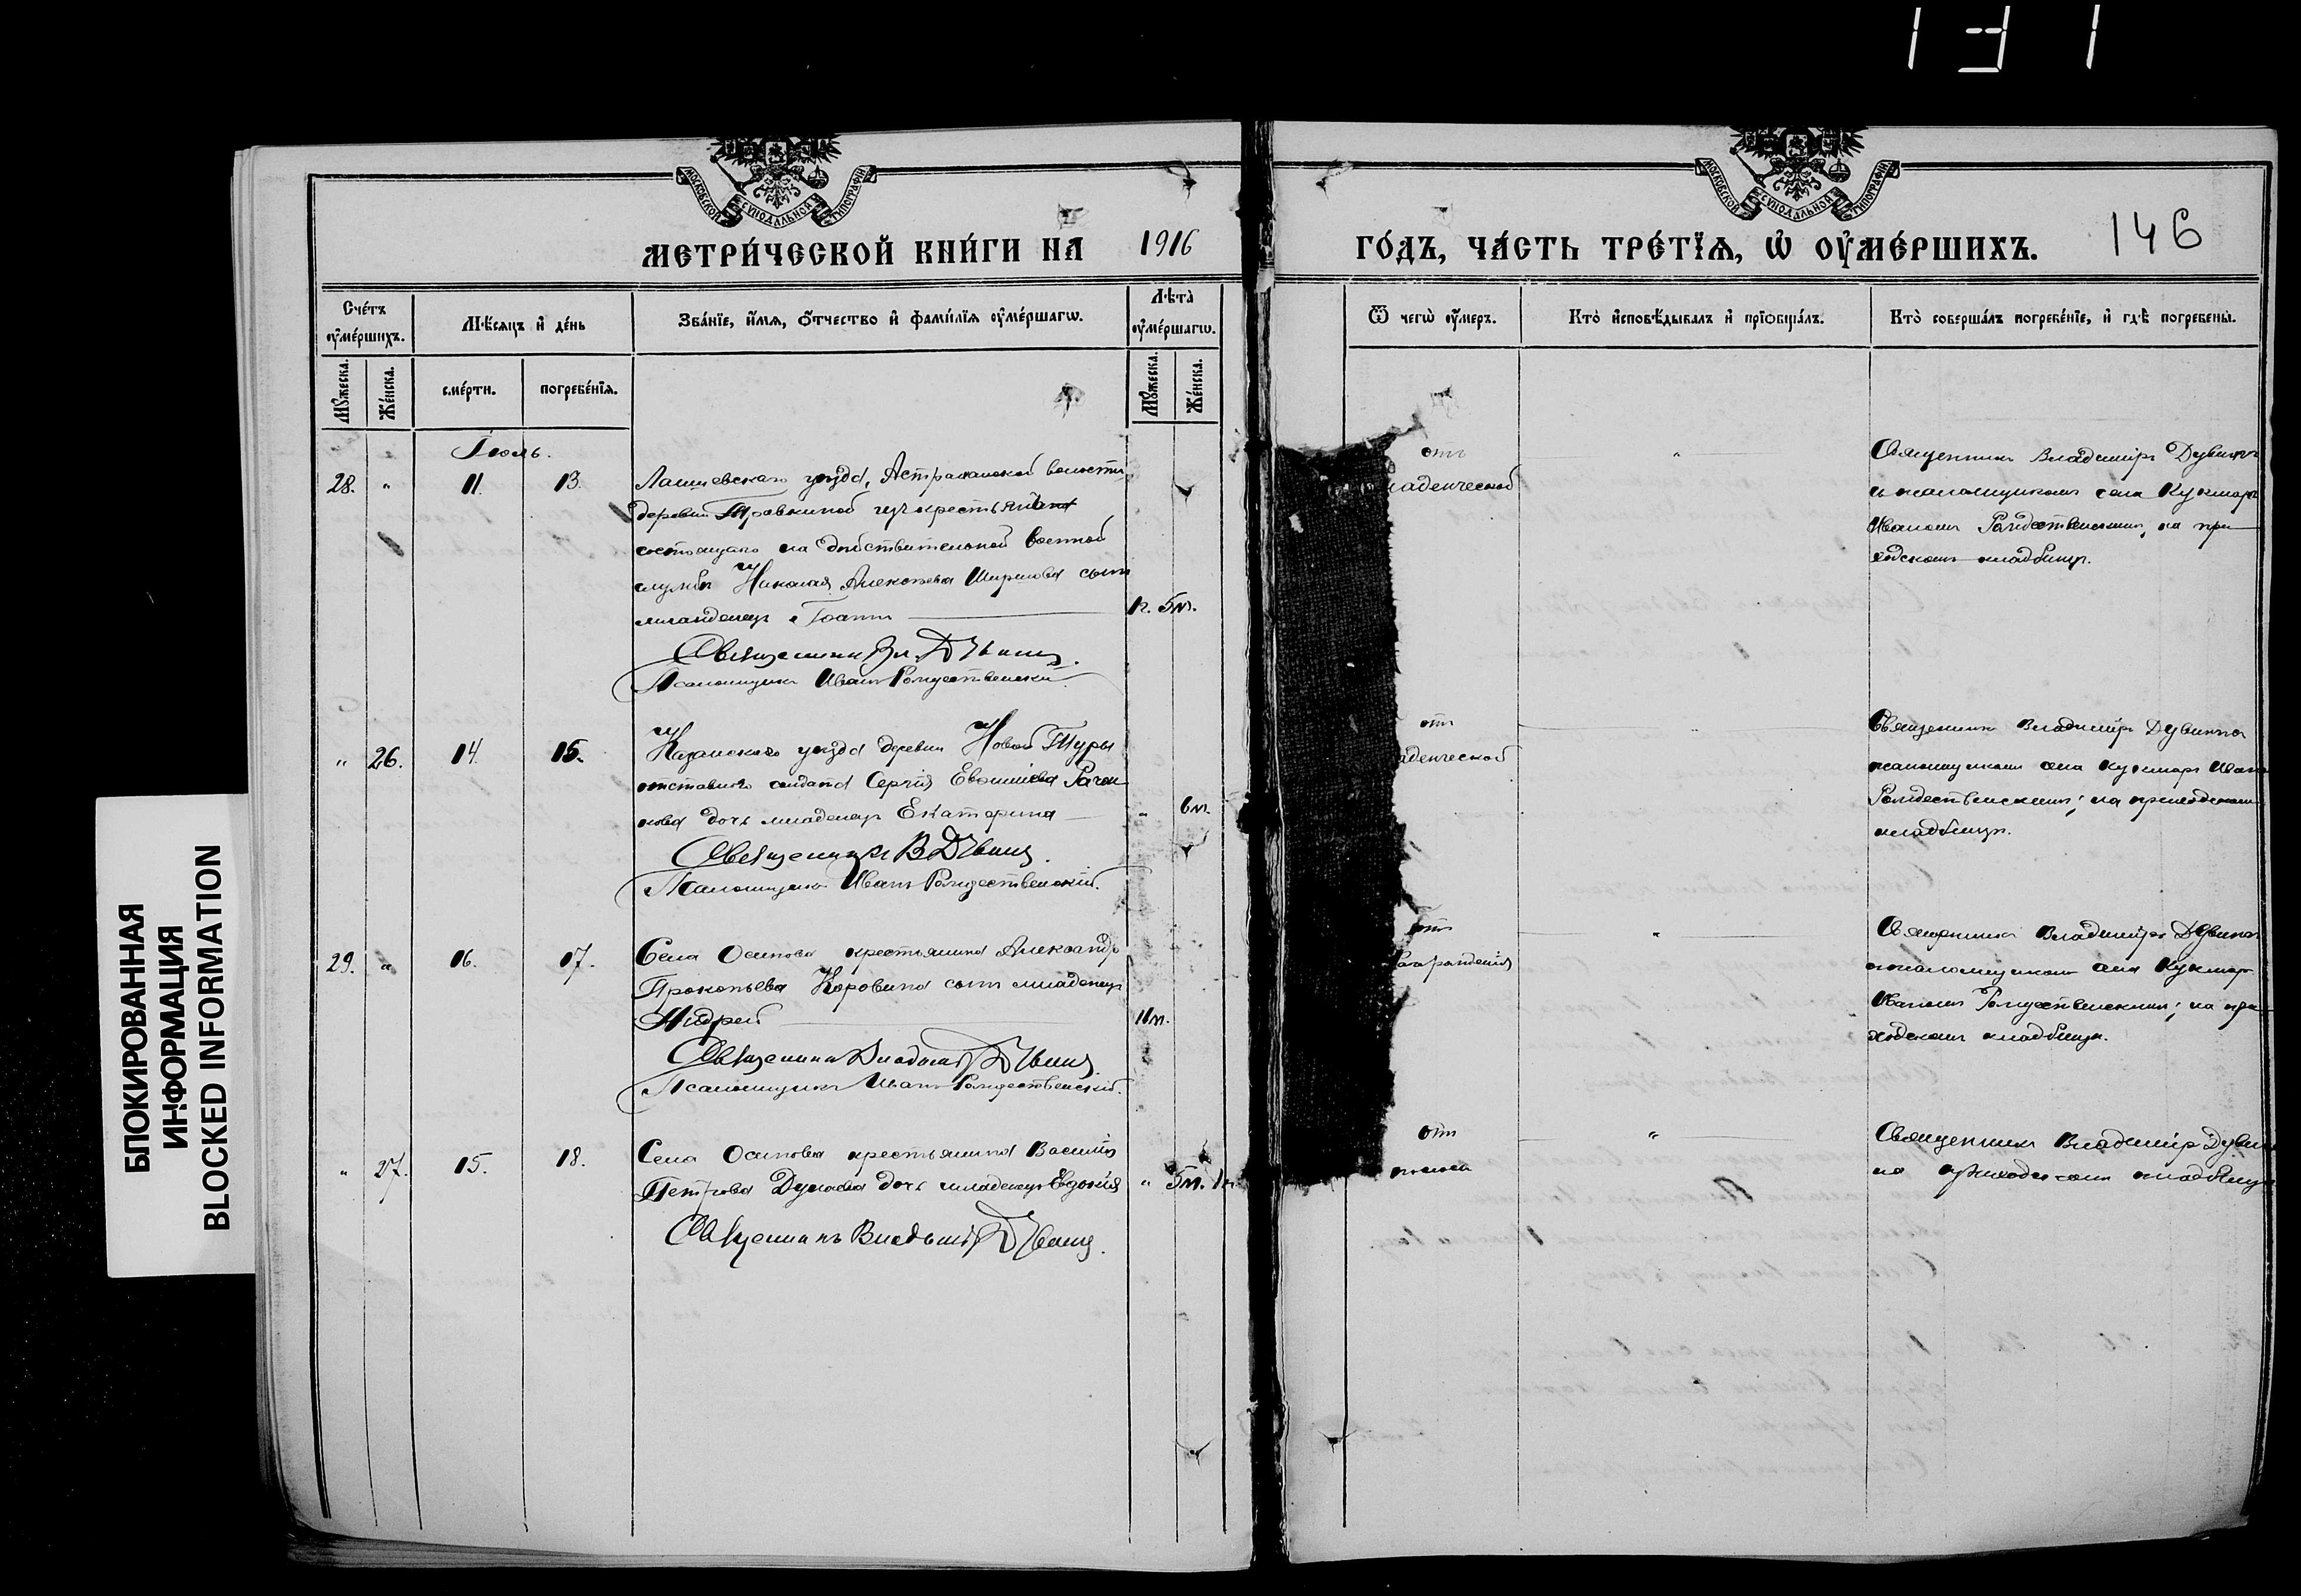 131
МОСКОВСКОЙ СУНОДАЛЬНОЙ ТИПОГРАФІИ
МОСКОВСКОЙ СУНОДАЛЬНОЙ ТИПОГРАФІИ
МЕТРИ́ЧЕСКОЙ КНИ́ГИ НА 1916 ГО́ДЪ, ЧА́СТЬ ТРЕ́ТЇѦ, Ѡ҆ ОУ҆МЕ́РШИХЪ.
146
Сче́тъ оу҆ме́ршихъ.
Мѣ́сѧцъ и҆ де́нь
Зва́нїе, и҆́мѧ, ѻ҆́тчество и҆ фами́лїѧ оу҆ме́ршагѡ.
Лѣ́та̀ оу҆ме́ршагѡ.
Ѿ чегѡ̀ оу҆́меръ.
Кто̀ и҆сповѣ́дывалъ и҆ прїѡбща́лъ.
Кто̀ соверша́лъ погребе́нїе, и҆ гдѣ̀ погребены̀.
Мꙋ́жеска.
Же́нска.
сме́рти.
погребе́нїѧ.
Мꙋ́жеска.
Же́нска.
Іюль.
28. " 11. 13.
Лаишевскаго уѣзда, Астраханской волости,
деревни Травкиной крестьянина
состоящаго на дѣйствительной военной
службѣ Николая Алексѣева Ширшова сынъ
младенецъ Іоаннъ
1г. 5м.
Священникъ Вл. Дувинъ.
Псаломщикъ Иванъ Рождественскій.
отъ
аденческой
"
Священникъ Владиміръ Дувинъ
съ псаломщикомъ села Кукморъ
Иваномъ Рождественскимъ, на при
ходскомъ кладбищѣ.
" 26. 14. 15.
Казанскаго уѣзда деревни Новой Туры
отставного солдата Сергія Евѳиміева
дочь младенецъ Екатерина
" 6м.
Священникъ В. Дувинъ.
Псаломщикъ Иванъ Рождественскій.
отъ
аденческой
Священникъ Владиміръ Дувинъ
псаломщикомъ села Кукморъ Иван
Рождественскимъ; на приходскомъ
кладбищѣ.
29. " 16. 17.
Села Осинова крестьянина Александр
Прокопьева Коровина сынъ младенецъ
Андрей
11м.
Священникъ Владиміръ Дувинъ.
Псаломщикъ Иванъ Рождественскій.
отъ
"
Священникъ Владиміръ Дувинъ
псаломщикомъ села Кукморъ
Иваномъ Рождественскимъ; на при
ходскомъ кладбищѣ.
" 27. 15. 18.
Села Осинова крестьянина Василія
Петрова Дунаева дочь младенецъ Евдокія
" 5м.
Священникъ Владиміръ Дувинъ.
отъ
поноса
"
Священникъ Владиміръ Дуви
на приходскомъ кладбищѣ
БЛОКИРОВАННАЯ
ИНФОРМАЦИЯ
BLOCKED INFORMATION